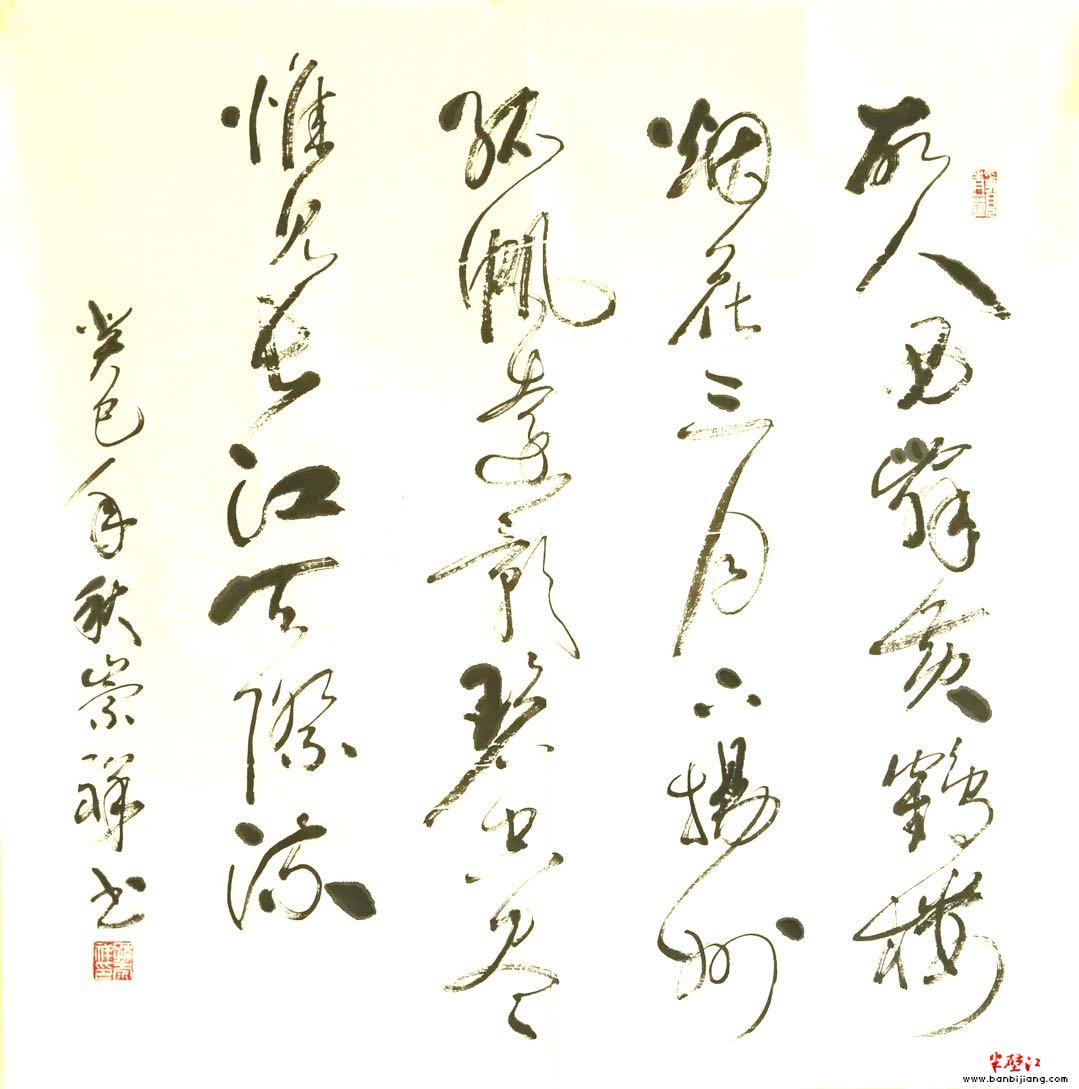 故人西辭黄鶴樓
烟花三月下揚州
孤帆遠影碧空尽
惟見長江天際流
癸巳年秋崇祥书
半壁江
www.banbijiang.com